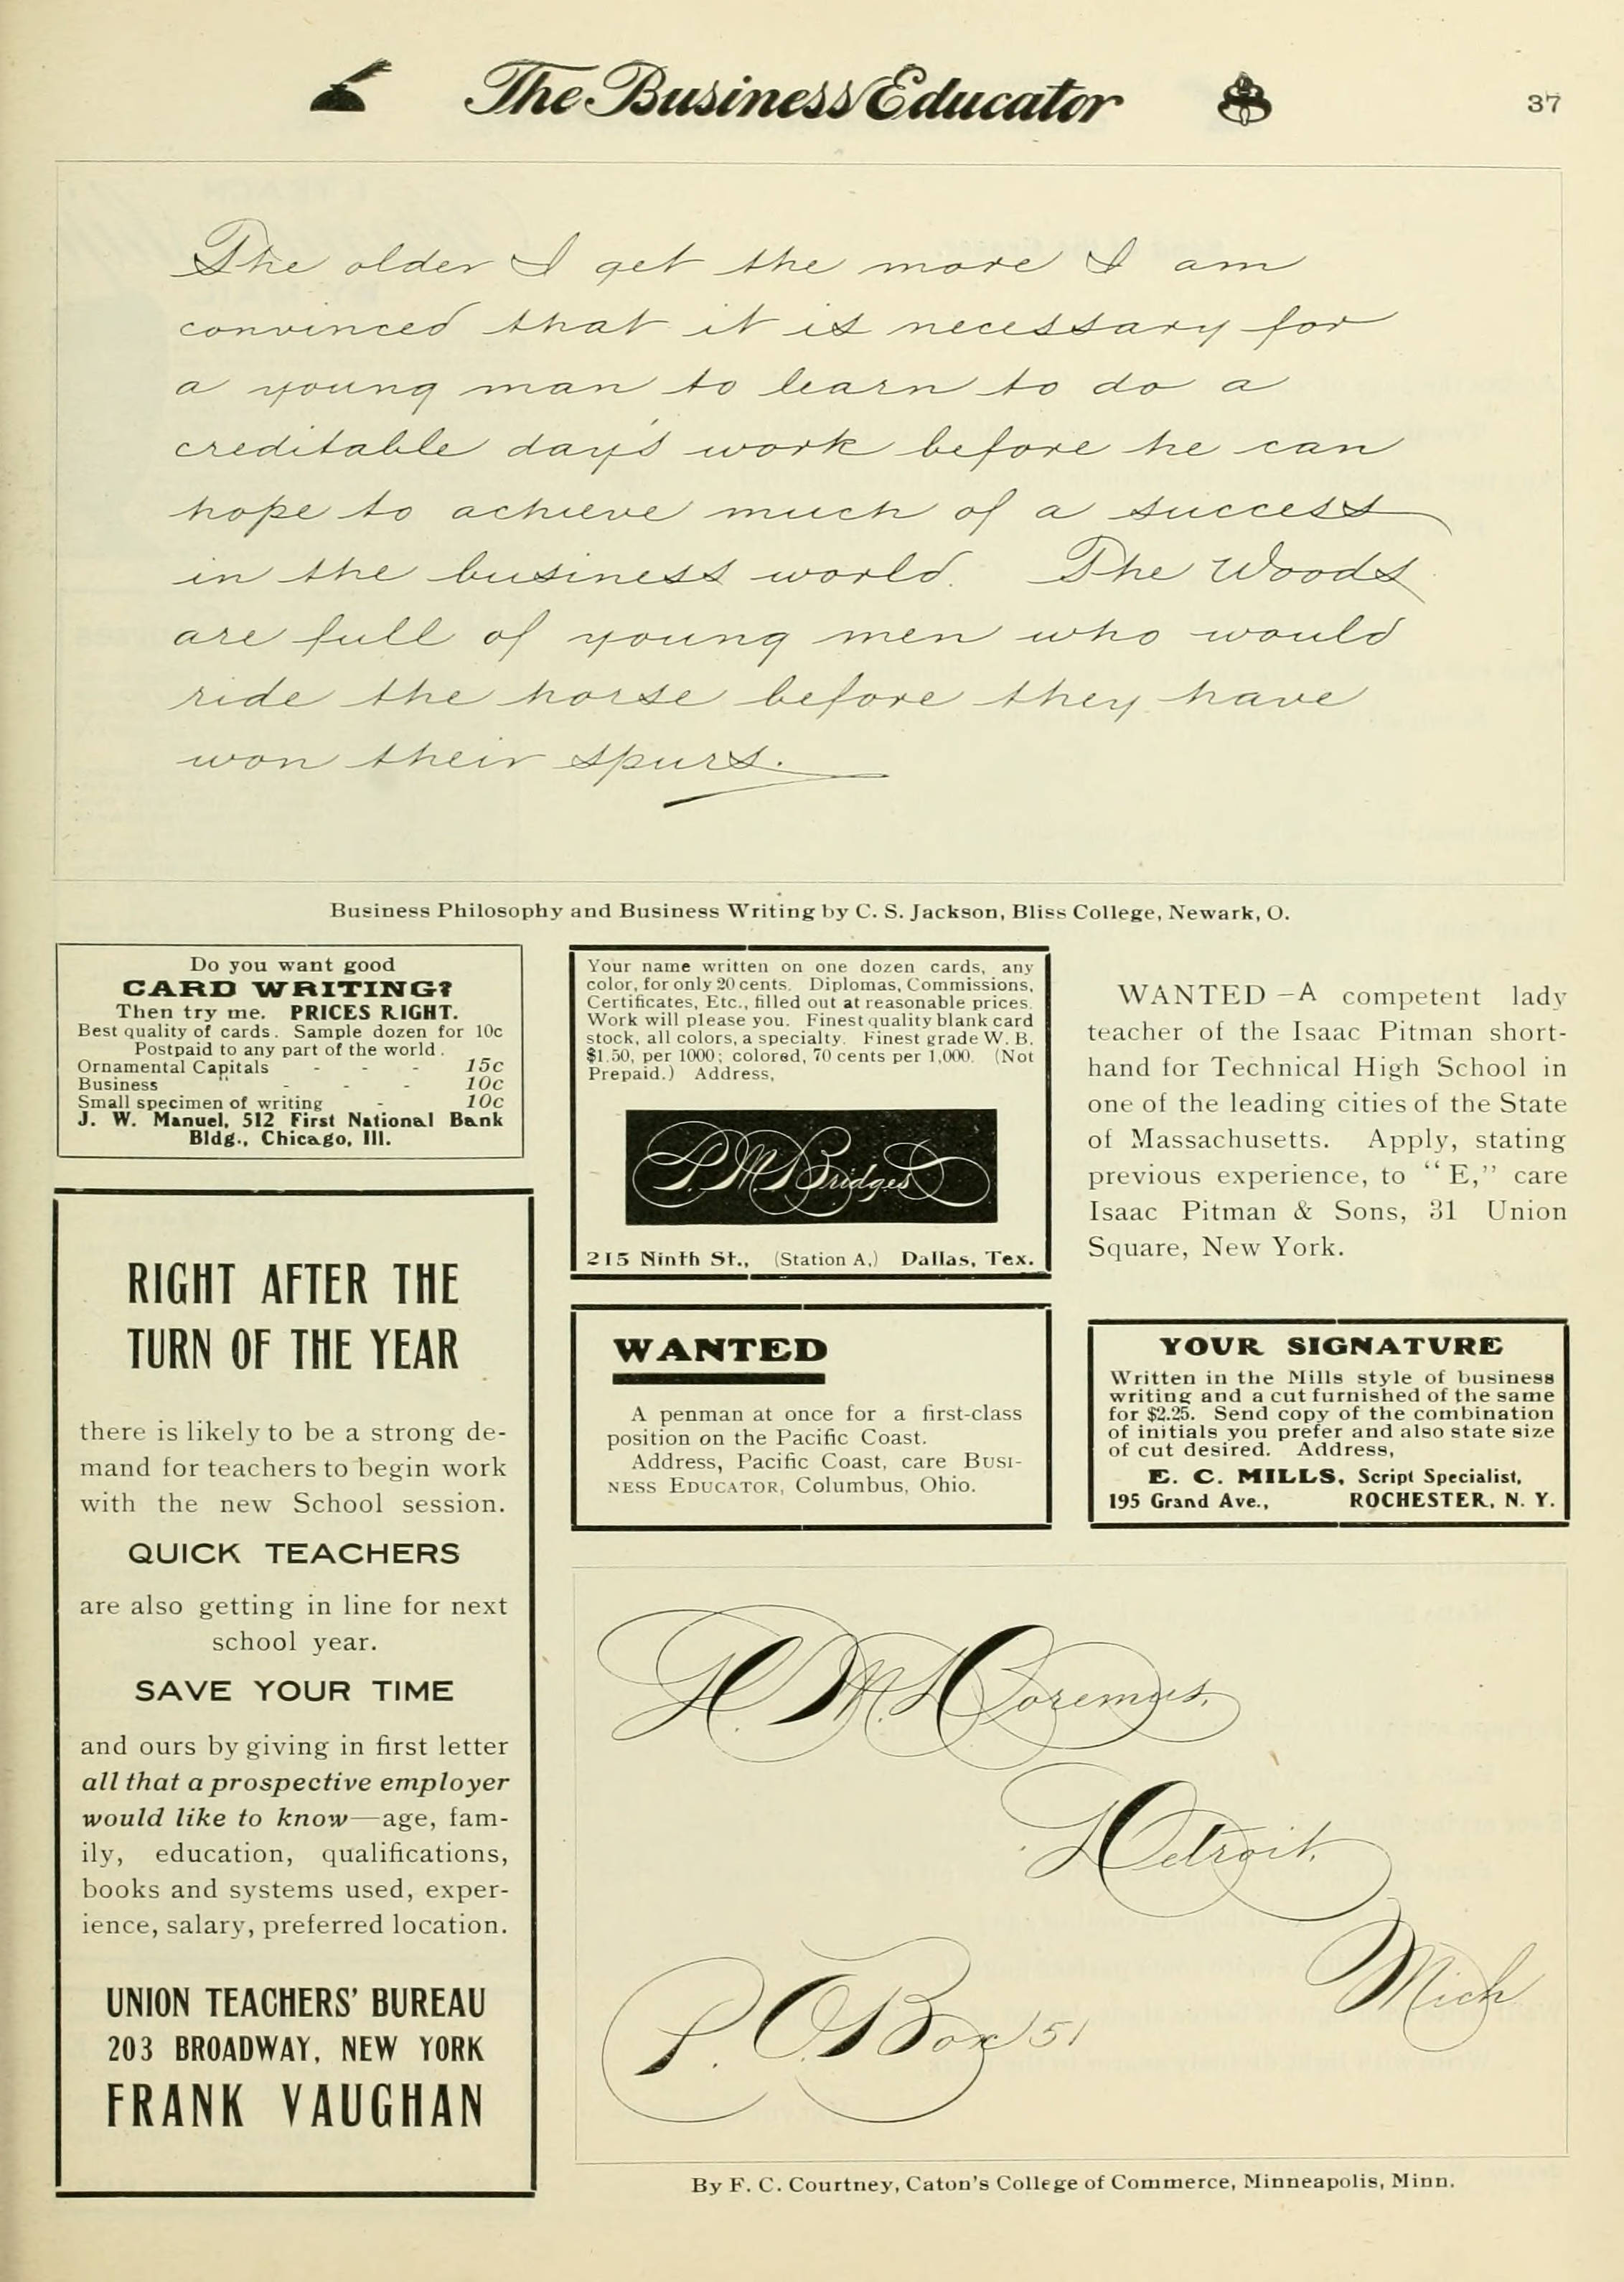 The Business Educator
37
The older I get the more I am
convinced that it is necessary for
a young man to learn to do a
creditable day's work before he can
hope to achieve much of a success
in the business world. The Woods
are full of young men who would
ride the horse before they have
won their spurs.
Business Philosophy and Business Writing by C. S. Jackson, Bliss College, Newark, O.
Do you want good
CARD WRITING?
Then try me. PRICES RIGHT.
Best quality of cards. Sample dozen for 10c
Postpaid to any part of the world.
Ornamental Capitals - - - 15c
Business " - - - 10c
Small specimen of writing - 10c
J. W. Manuel, 512 First National Bank
Bldg., Chicago, Ill.
RIGHT AFTER THE
TURN OF THE YEAR
there is likely to be a strong de-
mand for teachers to begin work
with the new School session.
QUICK TEACHERS
are also getting in line for next
school year.
SAVE YOUR TIME
and ours by giving in first letter
all that a prospective employer
would like to know—age, fam-
ily, education, qualifications,
books and systems used, exper-
ience, salary, preferred location.
UNION TEACHERS' BUREAU
203 BROADWAY, NEW YORK
FRANK VAUGHAN
Your name written on one dozen cards, any
color, for only 20 cents. Diplomas, Commissions,
Certificates, Etc., filled out at reasonable prices.
Work will please you. Finest quality blank card
stock, all colors, a specialty. Finest grade W. B.
$1.50, per 1000; colored, 70 cents per 1,000. (Not
Prepaid.) Address,
P. M. Bridges
215 Ninth St., (Station A,) Dallas, Tex.
WANTED
A penman at once for a first-class
position on the Pacific Coast.
Address, Pacific Coast, care BUSI-
NESS EDUCATOR, Columbus, Ohio.
WANTED -A competent lady
teacher of the Isaac Pitman short-
hand for Technical High School in
one of the leading cities of the State
of Massachusetts. Apply, stating
previous experience, to "E," care
Isaac Pitman & Sons, 31 Union
Square, New York.
YOUR SIGNATURE
Written in the Mills style of business
writing and a cut furnished of the same
for $2.25. Send copy of the combination
of initials you prefer and also state size
of cut desired. Address,
E. C. MILLS, Script Specialist,
195 Grand Ave., ROCHESTER, N. Y.
Doremus,
Detroit,
Mich
P. O. Box 151
By F. C. Courtney, Caton's College of Commerce, Minneapolis, Minn.